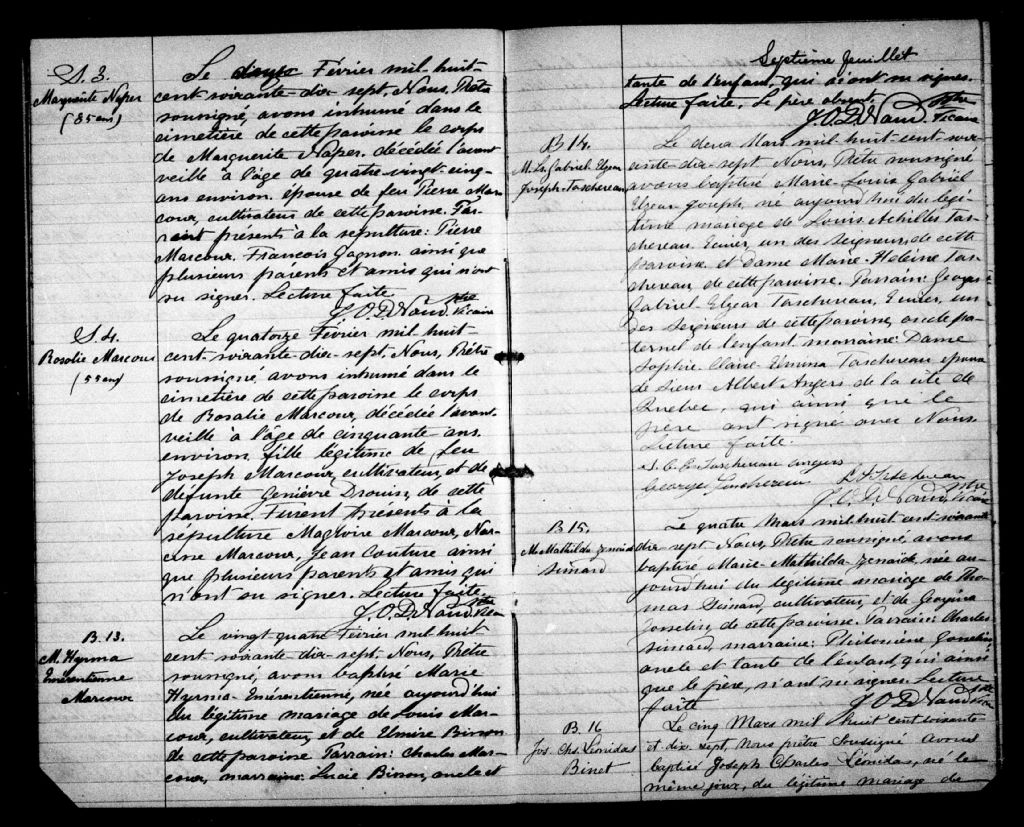 S. 3.
Marguerite Naper
(85 ans)
Le Février mil-huit-
cent-soixante-dix-sept. Nous, Prêtre
soussigné, avons inhumé dans le
cimetière de cette paroisse le corps
de Marguerite Naper, décédée l'avant
veille à l'âge de quatre-vingt-cinq-
ans environ, épouse de feu Pierre Mar-
cour, cultivateur de cette paroisse.
présents à la sépulture: Pierre
Marcour, François Gagnon ainsi que
plusieurs parents et amis qui n'ont
su signer. Lecture faite.
J. O. D. Naud Ptre
Vicaire
S. 4.
Rosalie Marcour
(55 ans)
Le quatorze Février mil-huit-
cent-soixante-dix-sept. Nous, Prêtre
soussigné, avons inhumé dans le
cimetière de cette paroisse le corps
de Rosalie Marcour, décédée l'avant-
veille à l'âge de cinquante-ans
environ, fille légitime de feu
Joseph Marcour, cultivateur, et de
défunte Genièvre Drouin, de cette
paroisse. Furent présents à la
sépulture Magloire Marcour, Nar-
cisse Marcour, Jean Couture ainsi
que plusieurs parents et amis qui
n'ont su signer. Lecture faite.
J. O. D. Naud Ptre
Vicaire
B. 13.
M. Hyrma
Emérentienne
Marcour
Le vingt-quatre Février mil-huit-
cent-soixante-dix-sept. Nous, Prêtre
soussigné, avons baptisé Marie
Hyrma-Emérentienne, née aujourd'hui
du légitime mariage de Louis Mar-
cour, cultivateur, et de Elmire Binon
de cette paroisse. Parrain: Charles Mar-
cour, marraine: Lucie Binon, oncle et
Septième feuillet
tante de l'enfant, qui n'ont su signer.
Lecture faite. Le père absent.
J. O. D. Naud Ptre
Vicaire
B 14.
M. Ls. Gabriel-Elzear
Joseph-Taschereau
Le deux Mars mil-huit-cent-soix-
ante-dix-sept Nous, Prêtre soussigné
avons baptisé Marie-Louis Gabriel
Elzear-Joseph, né aujourd'hui du légi-
time mariage de Louis Achilles Tas-
chereau Ecuier, un des Seigneurs de cette
paroisse et Dame Marie-Helène Tas-
chereau, de cette paroisse. Parrain: Georges
Gabriel Elzear Taschereau, Ecuier, un
des Seigneurs de cette paroisse, oncle pa-
ternel de l'enfant marraine: Dame
Sophie-Claire-Emma Taschereau épouse
de Sieur Albert Angers de la cité de
Québec, qui ainsi que le
père ont signé avec Nous.
Lecture faite.
S. C. E. Taschereau Angers
Georges Taschereau
J. O. D. Naud Ptre
Vicaire
B 15.
M. Mathilda Zénaïde
Simard
Le quatre Mars mil huit cent-soixante
dix-sept Nous, Prêtre soussigné, avons
baptisé Marie-Mathilda-Zénaïde, née au-
jourd'hui du légitime mariage de Tho-
mas Simard, cultivateur, et de Georgina
Josselin, de cette paroisse. Parrain: Charles
Simard, marraine: Philomène Josselin,
oncle et tante de l'enfant, qui ainsi
que le père, n'ont su signer. Lecture
faite
J. O. D. Naud Ptre
Vicaire
B. 16
Jos. Chs. Léonidas
Binet
Le cinq Mars mil huit cent soixante
et dix sept, nous prêtre soussigné avons
baptisé Joseph Charles Léonidas, né le
même jour, du légitime mariage de